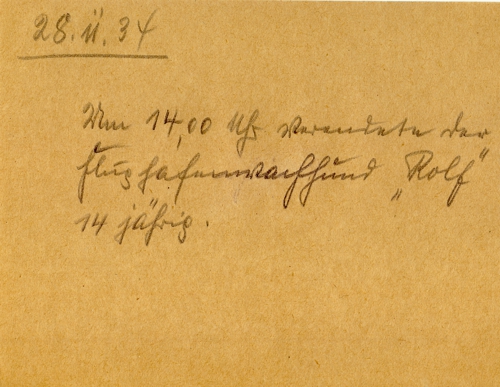 28.11.34
Um 14,00 Uhr verendete der
Flughafenwachhund „Rolf"
14 jährig.